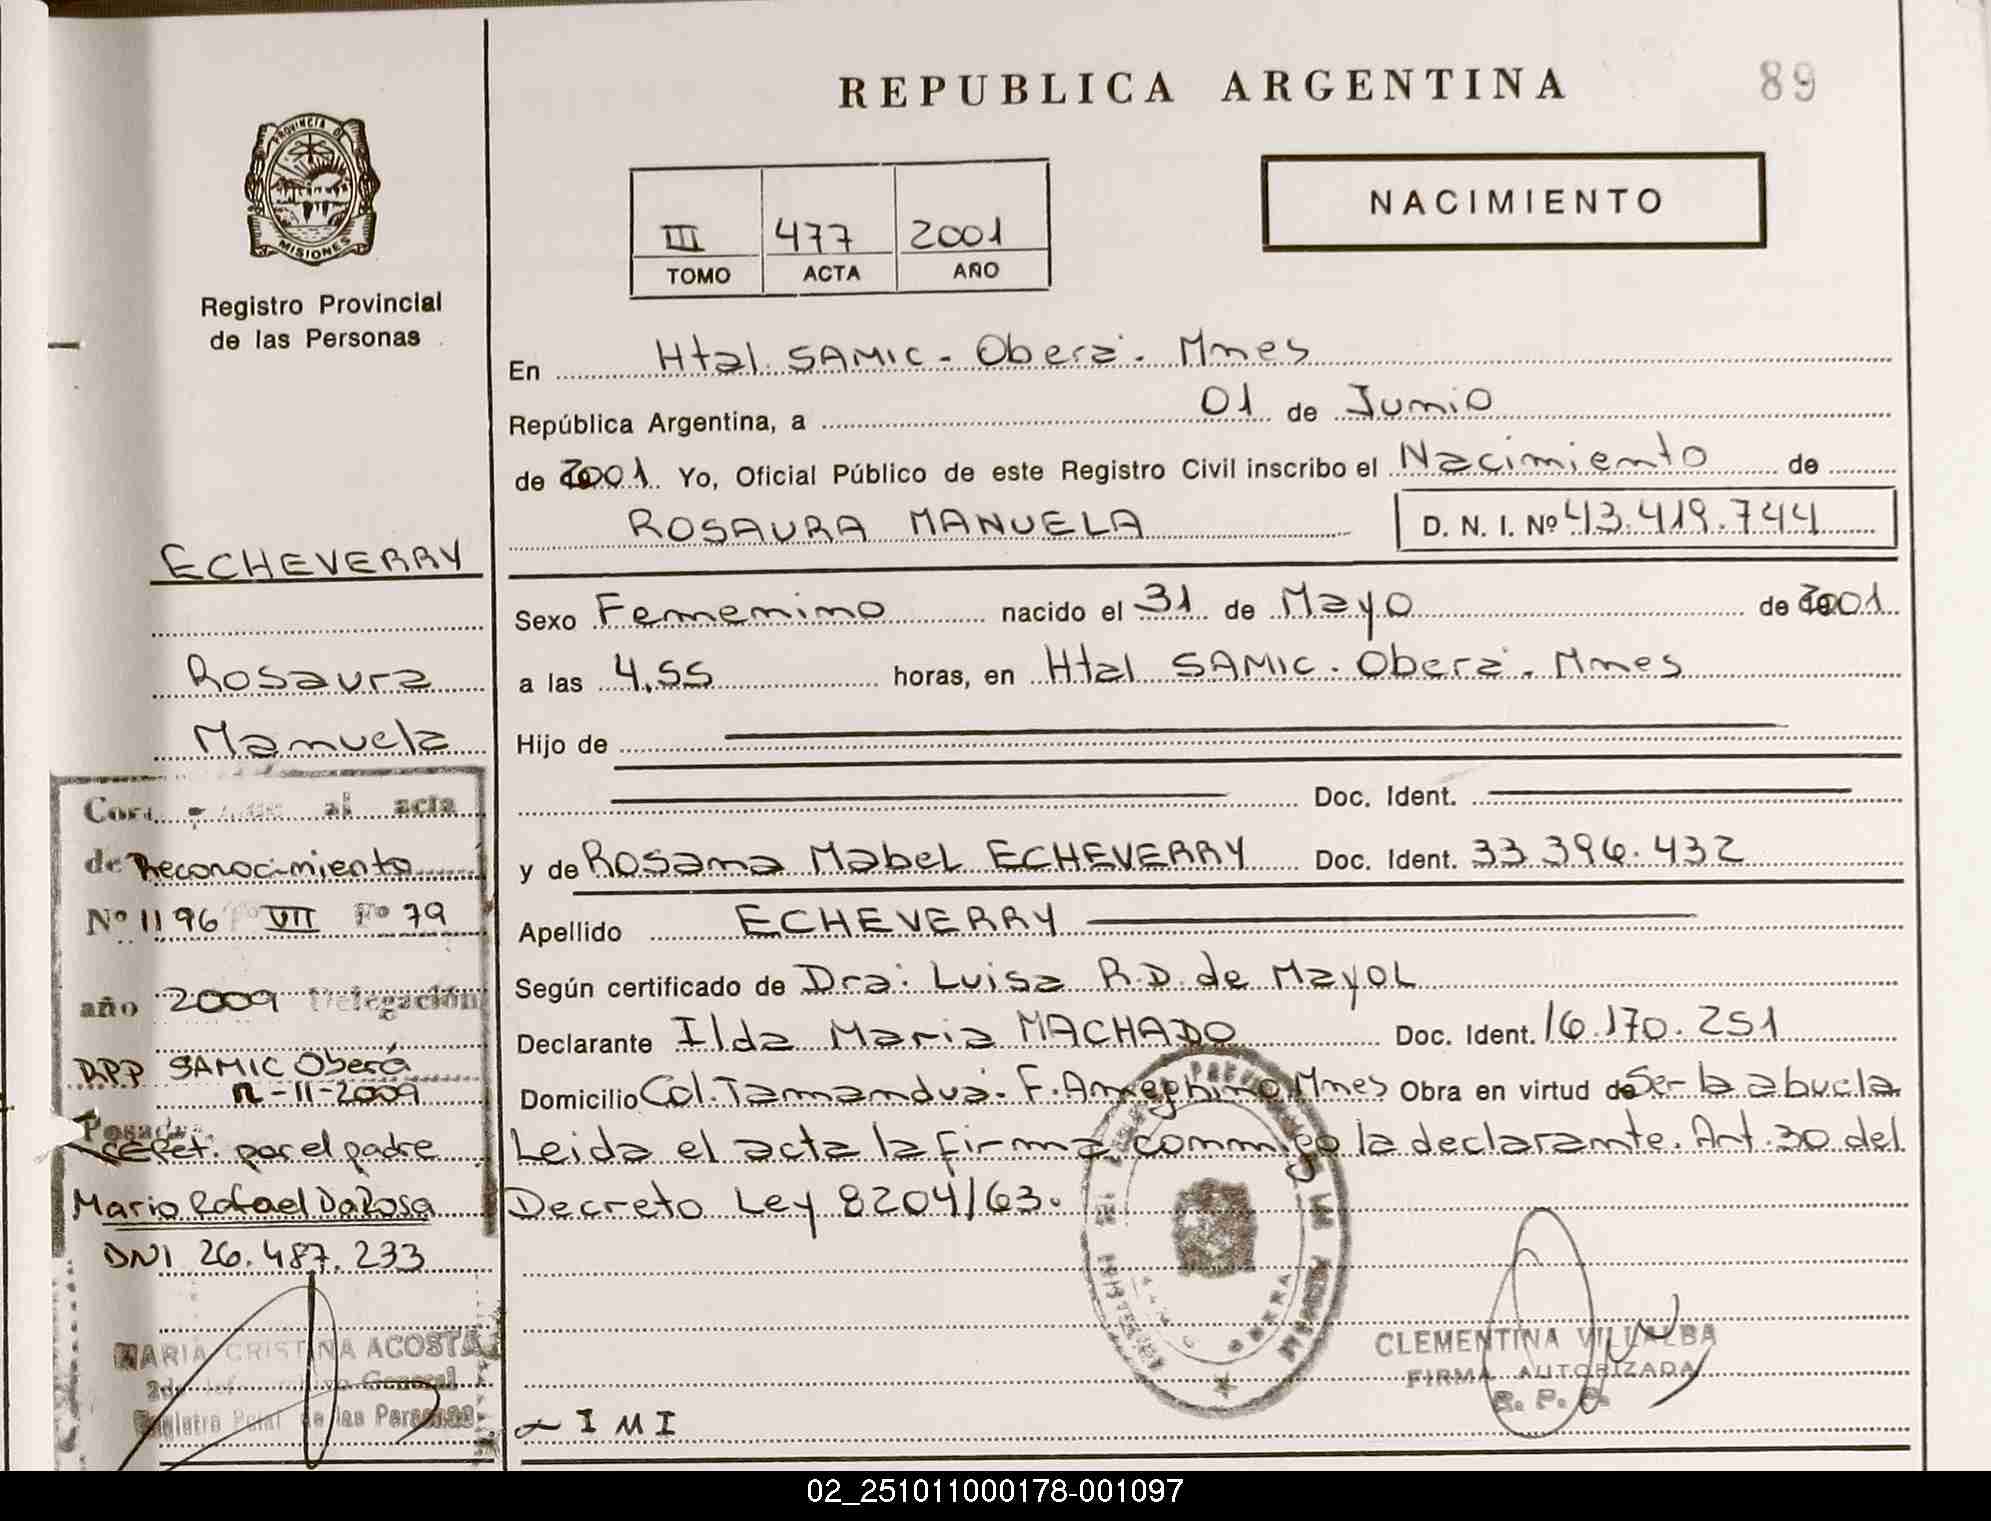 REPUBLICA ARGENTINA
89
PROVINCIA DE
MISIONES
Registro Provincial
de las Personas
NACIMIENTO
III 477 2001
TOMO ACTA AÑO
En Htal. SAMIC - Oberá - Mnes
República Argentina, a 01 de Junio
de 2001. Yo, Oficial Público de este Registro Civil inscribo el Nacimiento de
ROSAURA MANUELA D. N. I. Nº 43.419.744
Sexo Femenino nacido el 31 de Mayo de 2001
a las 4,55 horas, en Htal SAMIC - Oberá - Mnes
Hijo de
Doc. Ident.
y de Rosana Mabel ECHEVERRY Doc. Ident. 33.396.432
Apellido ECHEVERRY
Según certificado de Dra: Luisa R.D. de Mayol
Declarante Ilda Maria MACHADO Doc. Ident. 16.170.251
Domicilio Col. Tamanduá. F. Ameghino Mnes Obra en virtud de Ser la abuela
Leida el acta la firma conmigo la declarante. Art. 30 del
Decreto Ley 8204/63.
CLEMENTINA VILLALBA
FIRMA AUTORIZADA
R. P. P.
I M I
ECHEVERRY
Rosaura
Manuela
al acta
de Reconocimiento
Nº 1196 Tº VII Fº 79
año 2009 Delegación
R.P.P SAMIC Oberá
-11-2009
Posadas
por el padre
Mario Rafael DaRosa
DNI 26.487.233
MARIA CRISTINA ACOSTA
General
de las Personas
OBERA
02_251011000178-001097